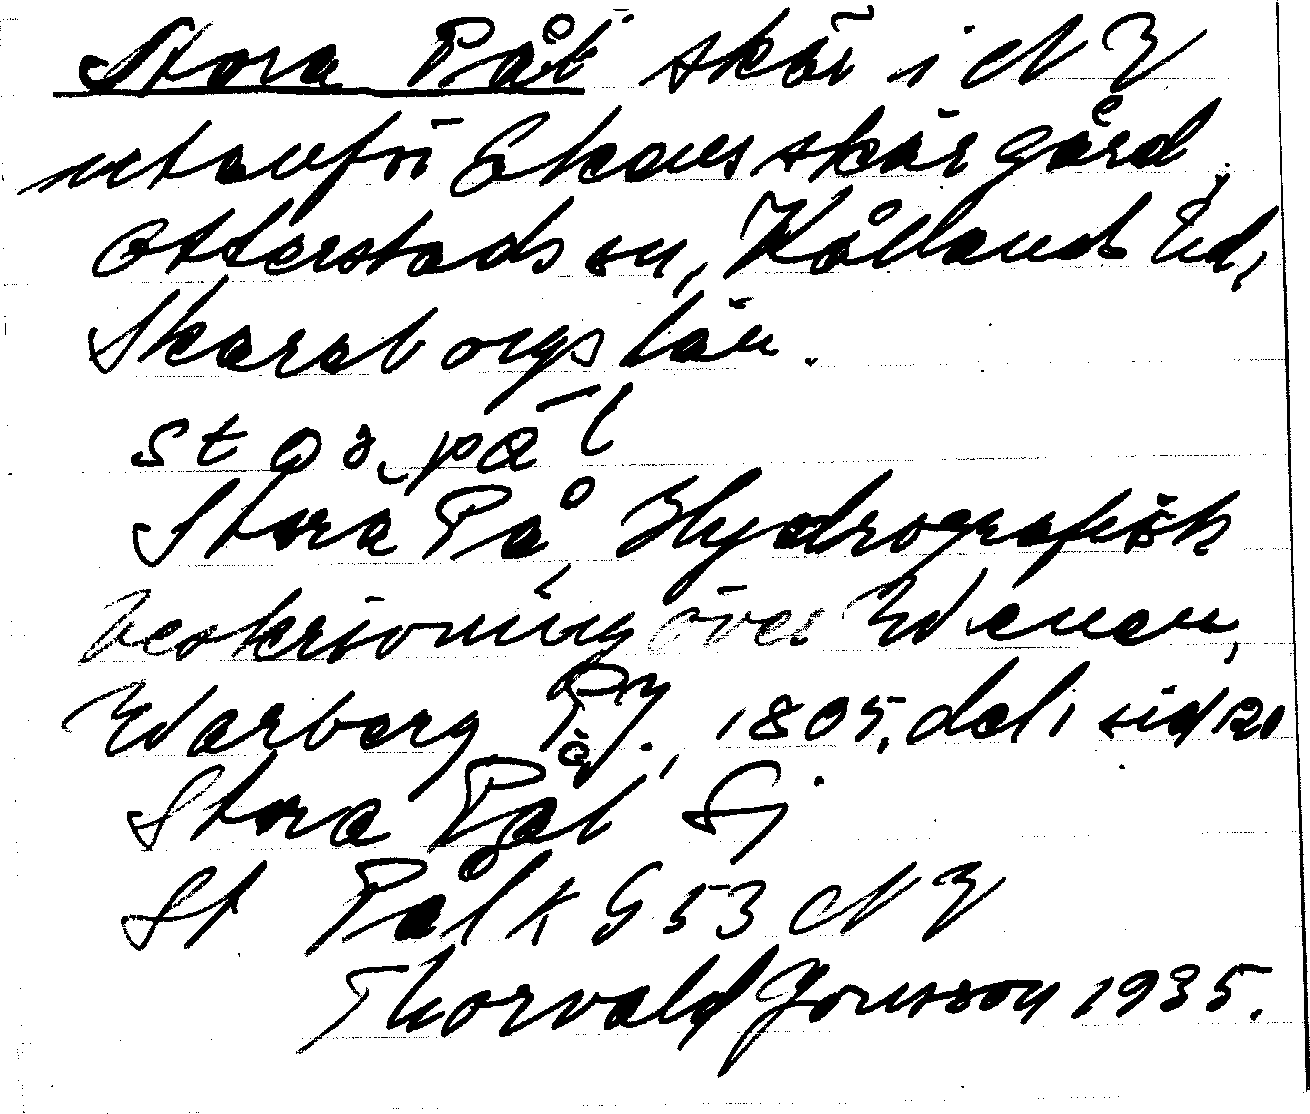 Stora Pål skär i N V
utanför Ekens skärgård,
Otterstads sn, Kållands hd,
Skaraborgs län.
Stora Pål, Hydrografisk
beskrivning över Wenen,
Warberg P. J., 1805, del 1 sid 121
Stora Pål Sj
St Pål k G 53 N V
Thorvald Jonsson 1935.